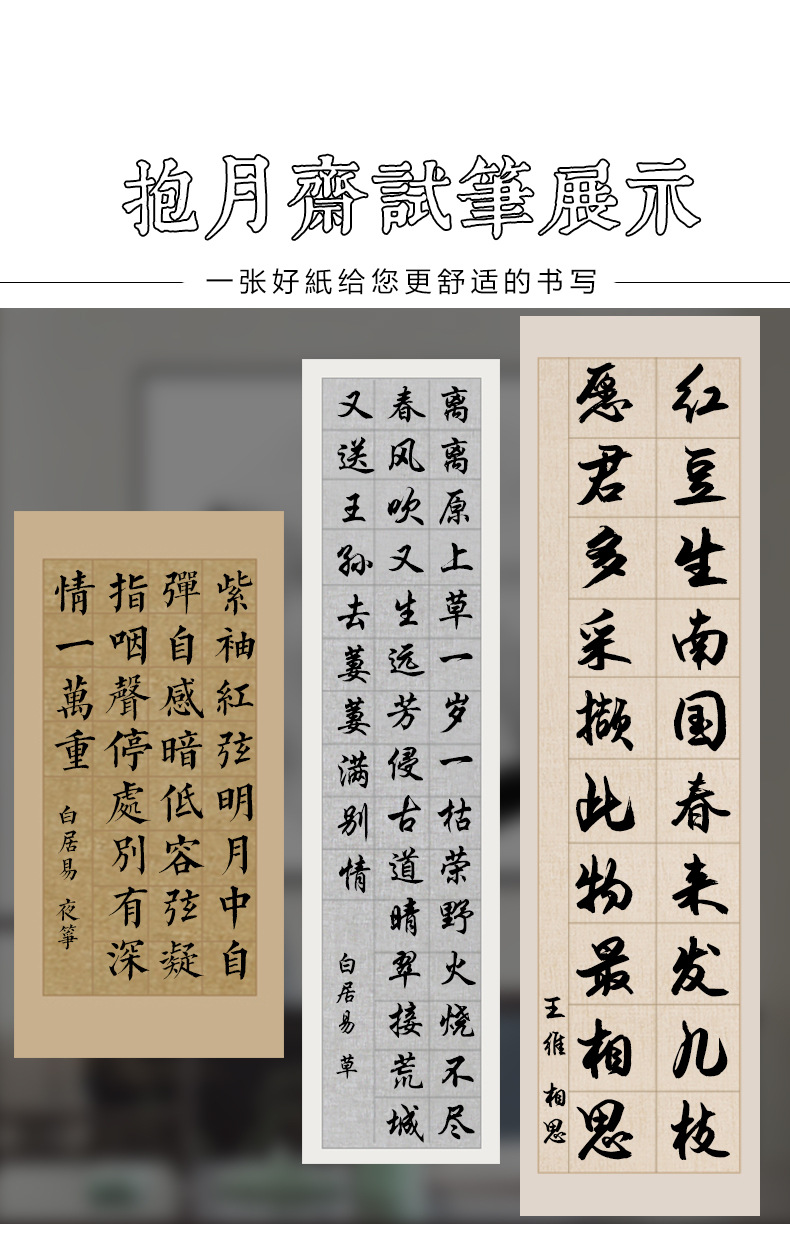 抱月齋試筆展示
一张好紙给您更舒适的书写
红豆生南国春来发几枝
愿君多采撷此物最相思
王维 相思
离离原上草一岁一枯荣野火烧不尽
春风吹又生远芳侵古道晴翠接荒城
又送王孙去萋萋满别情
白居易 草
紫袖紅弦明月中自
彈自感暗低容弦凝
指咽聲停處別有深
情一萬重
白居易 夜箏